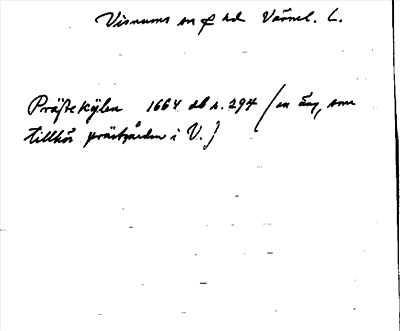 Visnums sn φ hd Värml. L.
Prästekýlen 1664 db s. 294 (en äng, som
tillhör prästgården i V.)